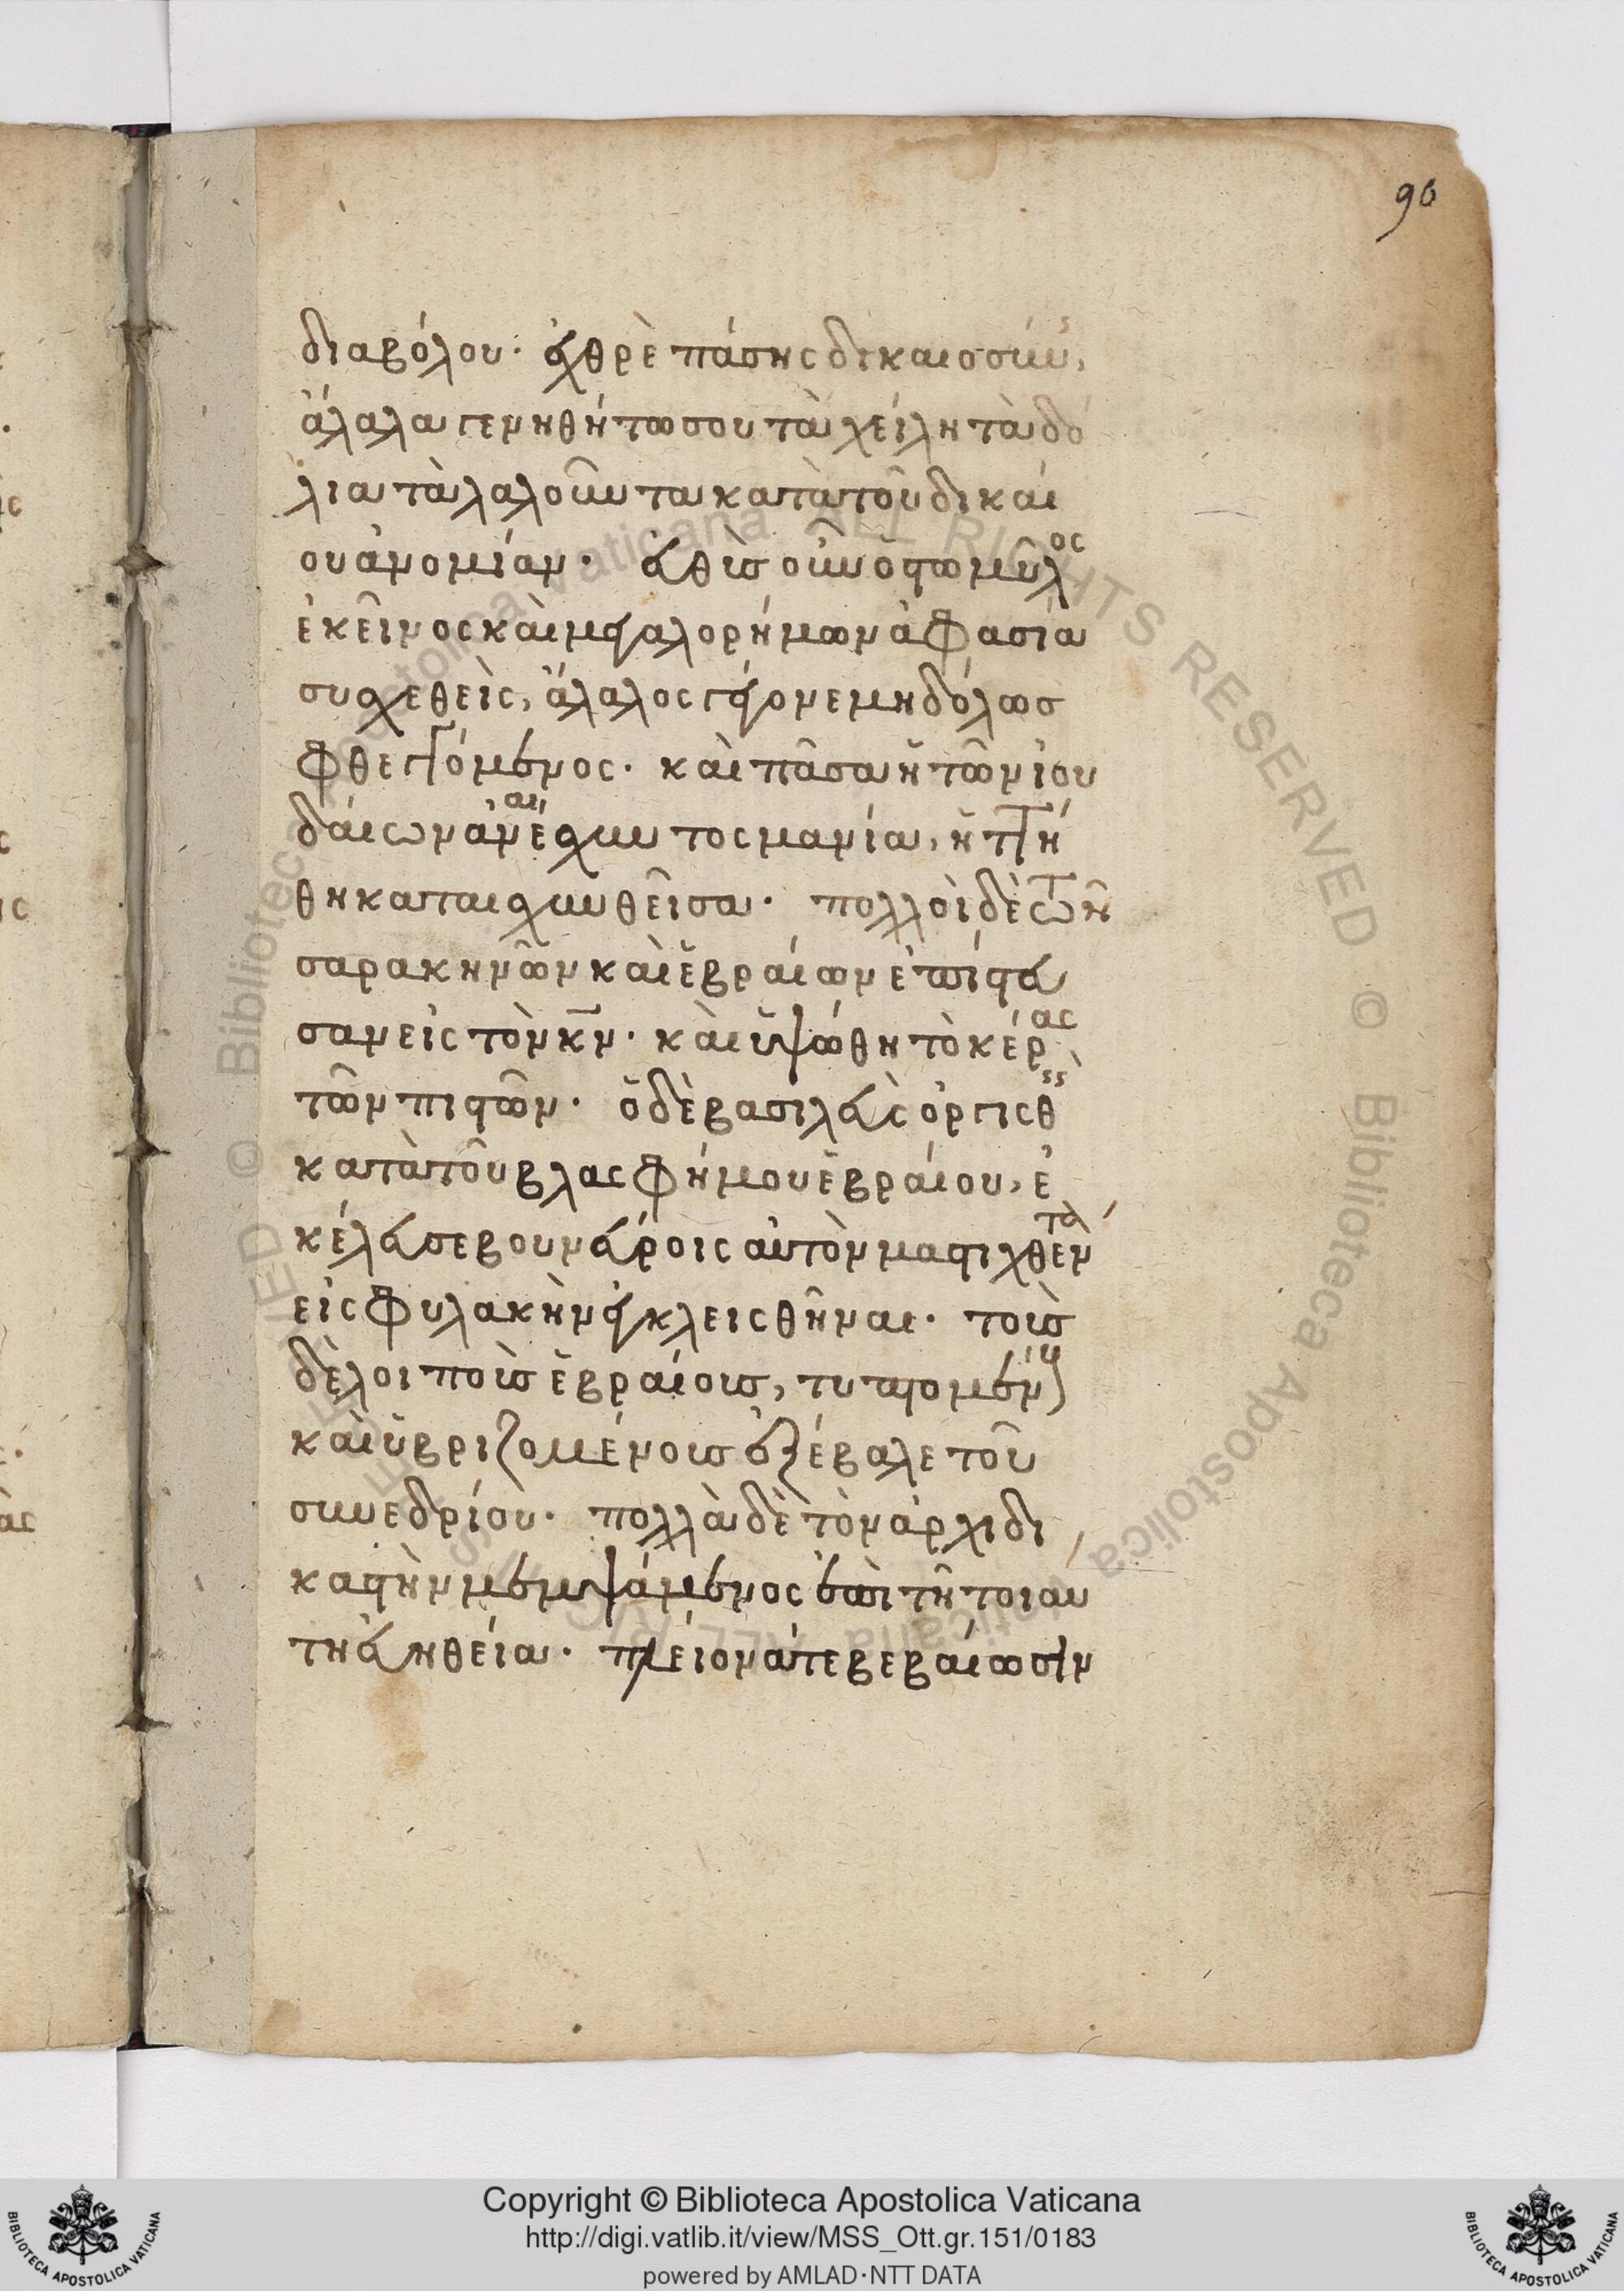 90
διαβόλου· ἐχθρὲ πάσης δικαιοσύν(ης),
ἄλαλα γενηθήτωσου τὰ χείλη τὰ δό
λια τὰ λαλοῦντα κατὰ τοῦ δικαί
ου ἀνομίαν· εὐθὺς οὖν ὁ στωμύλος
ἐκεῖνος καὶ μεγαλορήμων ἀφασία
συσχεθεὶς, ἄλαλος γέγονε μηδόλως
φθεγγόμενος· καὶ πᾶσα ἡ τῶν ἰου
δαίων ἀναίσχυντος μανία, ἡττή
θη καταισχυνθεῖσα· πολλοὶ δὲ τῶν
σαρακηνῶν καὶ ἑβραίων ἐπίστευ
σαν εἰς τὸν κν· καὶ ὑψώθη τὸ κέρας
τῶν πιστῶν· ὁ δὲ βασιλεὺς ὀργισθεὶς
κατὰ τοῦ βλασφήμου ἑβραίου, ἐ
κέλευσε βουνεύροις αὐτὸν μαστιχθέντα
εἰς φυλακὴν ἐγκλεισθῆναι· τοὺς
δὲ λοιποὺς ἑβραίους, τυπτομένους
καὶ ὑβριζομένους ἐξέβαλε τοῦ
συνεδρίου· πολλὰ δὲ τὸν ἀρχιδι
καστὴν μεμψάμενος ἐπὶ τῆ τοιαύ
τη ἀληθεία· πλείονά τε βεβαίωσιν
Copyright © Biblioteca Apostolica Vaticana
http://digi.vatlib.it/view/MSS_Ott.gr.151/0183
powered by AMLAD·NTT DATA